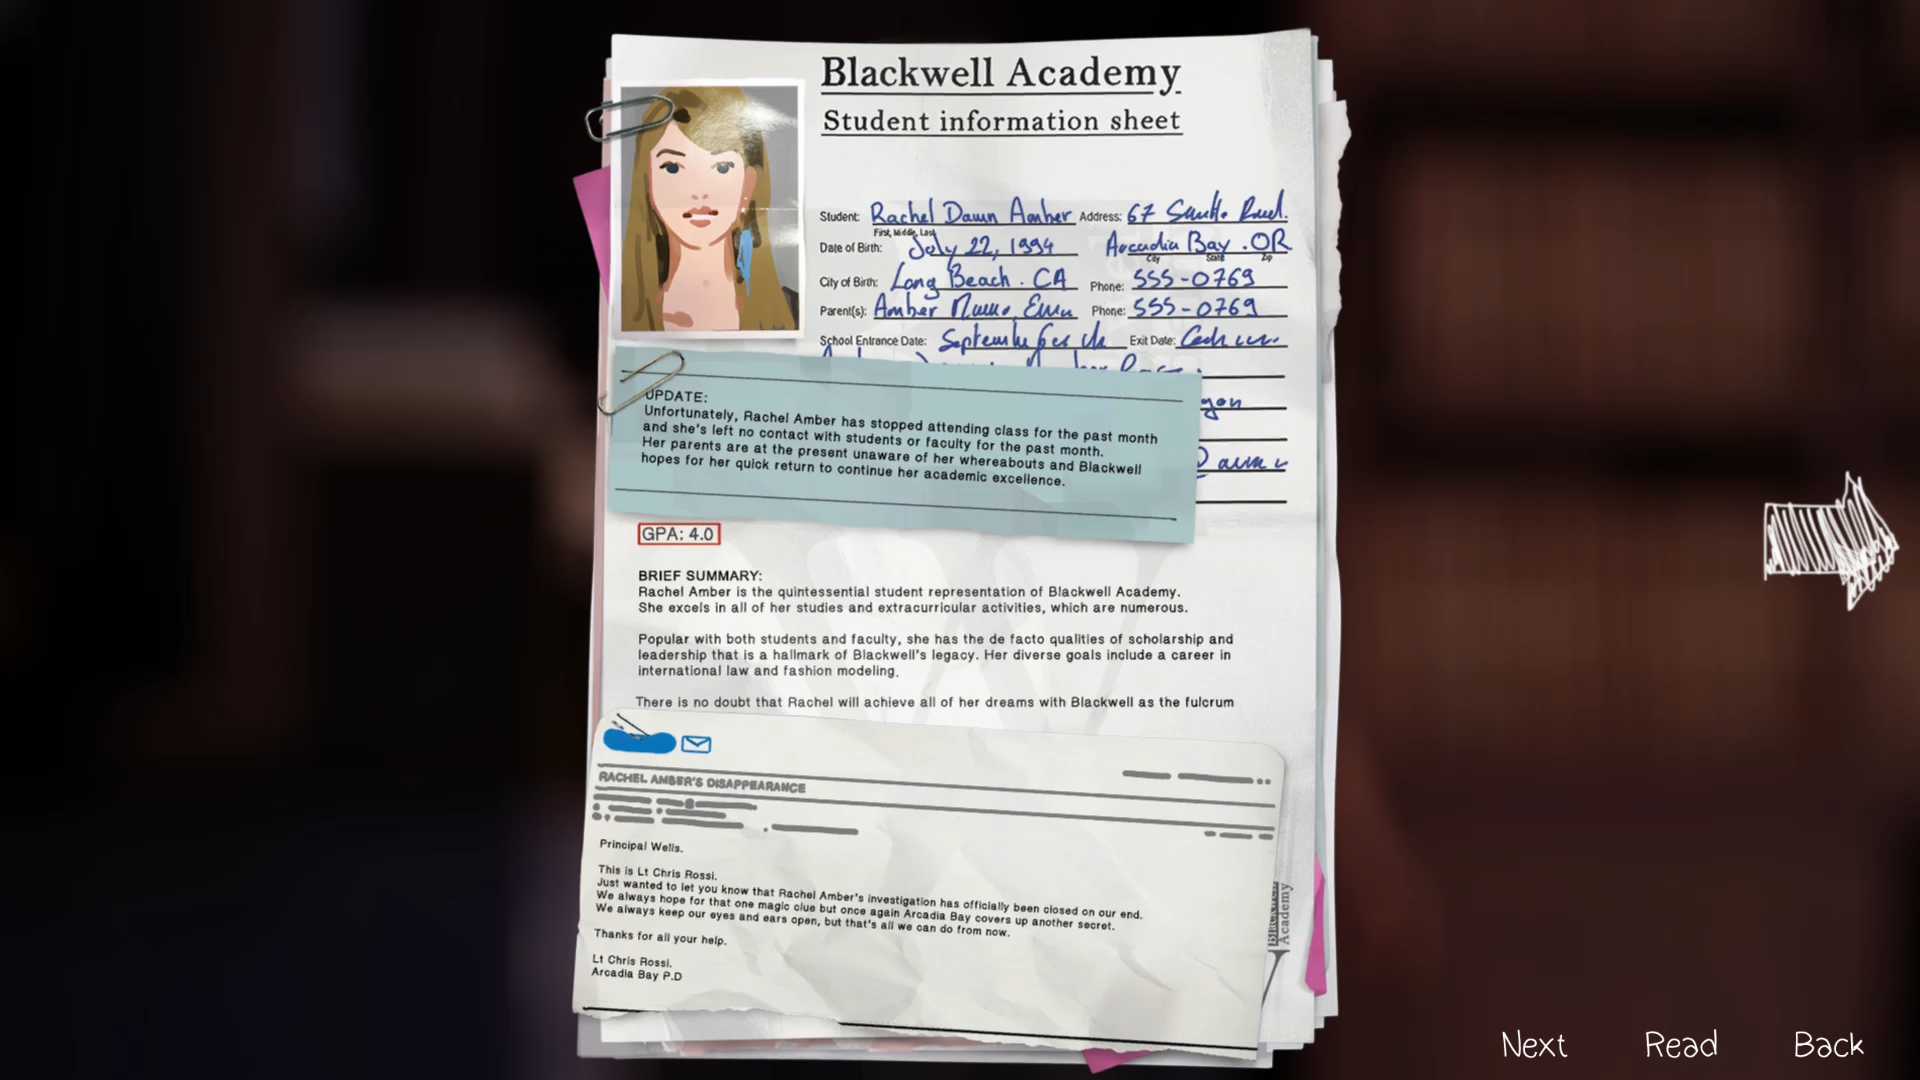 Blackwell Academy
Student information sheet
Student: Rachel Dawn Amber Address: 67
First, Middle, Last
Date of Birth: July 22, 1994 Arcadia Bay . OR
City State Zip
City of Birth: Long Beach . CA Phone: 555-0769
Parent(s): Amber Phone: 555-0769
School Entrance Date: Exit Date:
UPDATE:
Unfortunately, Rachel Amber has stopped attending class for the past month
and she's left no contact with students or faculty for the past month.
Her parents are at the present unaware of her whereabouts and Blackwell
hopes for her quick return to continue her academic excellence.
GPA: 4.0
BRIEF SUMMARY:
Rachel Amber is the quintessential student representation of Blackwell Academy.
She excels in all of her studies and extracurricular activities, which are numerous.
Popular with both students and faculty, she has the de facto qualities of scholarship and
leadership that is a hallmark of Blackwell's legacy. Her diverse goals include a career in
international law and fashion modeling.
There is no doubt that Rachel will achieve all of her dreams with Blackwell as the fulcrum
RACHEL AMBER'S DISAPPEARANCE
Principal Wells.
This is Lt Chris Rossi.
Just wanted to let you know that Rachel Amber's investigation has officially been closed on our end.
We always hope for that one magic clue but once again Arcadia Bay covers up another secret.
We always keep our eyes and ears open, but that's all we can do from now.
Thanks for all your help.
Lt Chris Rossi.
Arcadia Bay P.D
Blackwell
Academy
Next Read Back